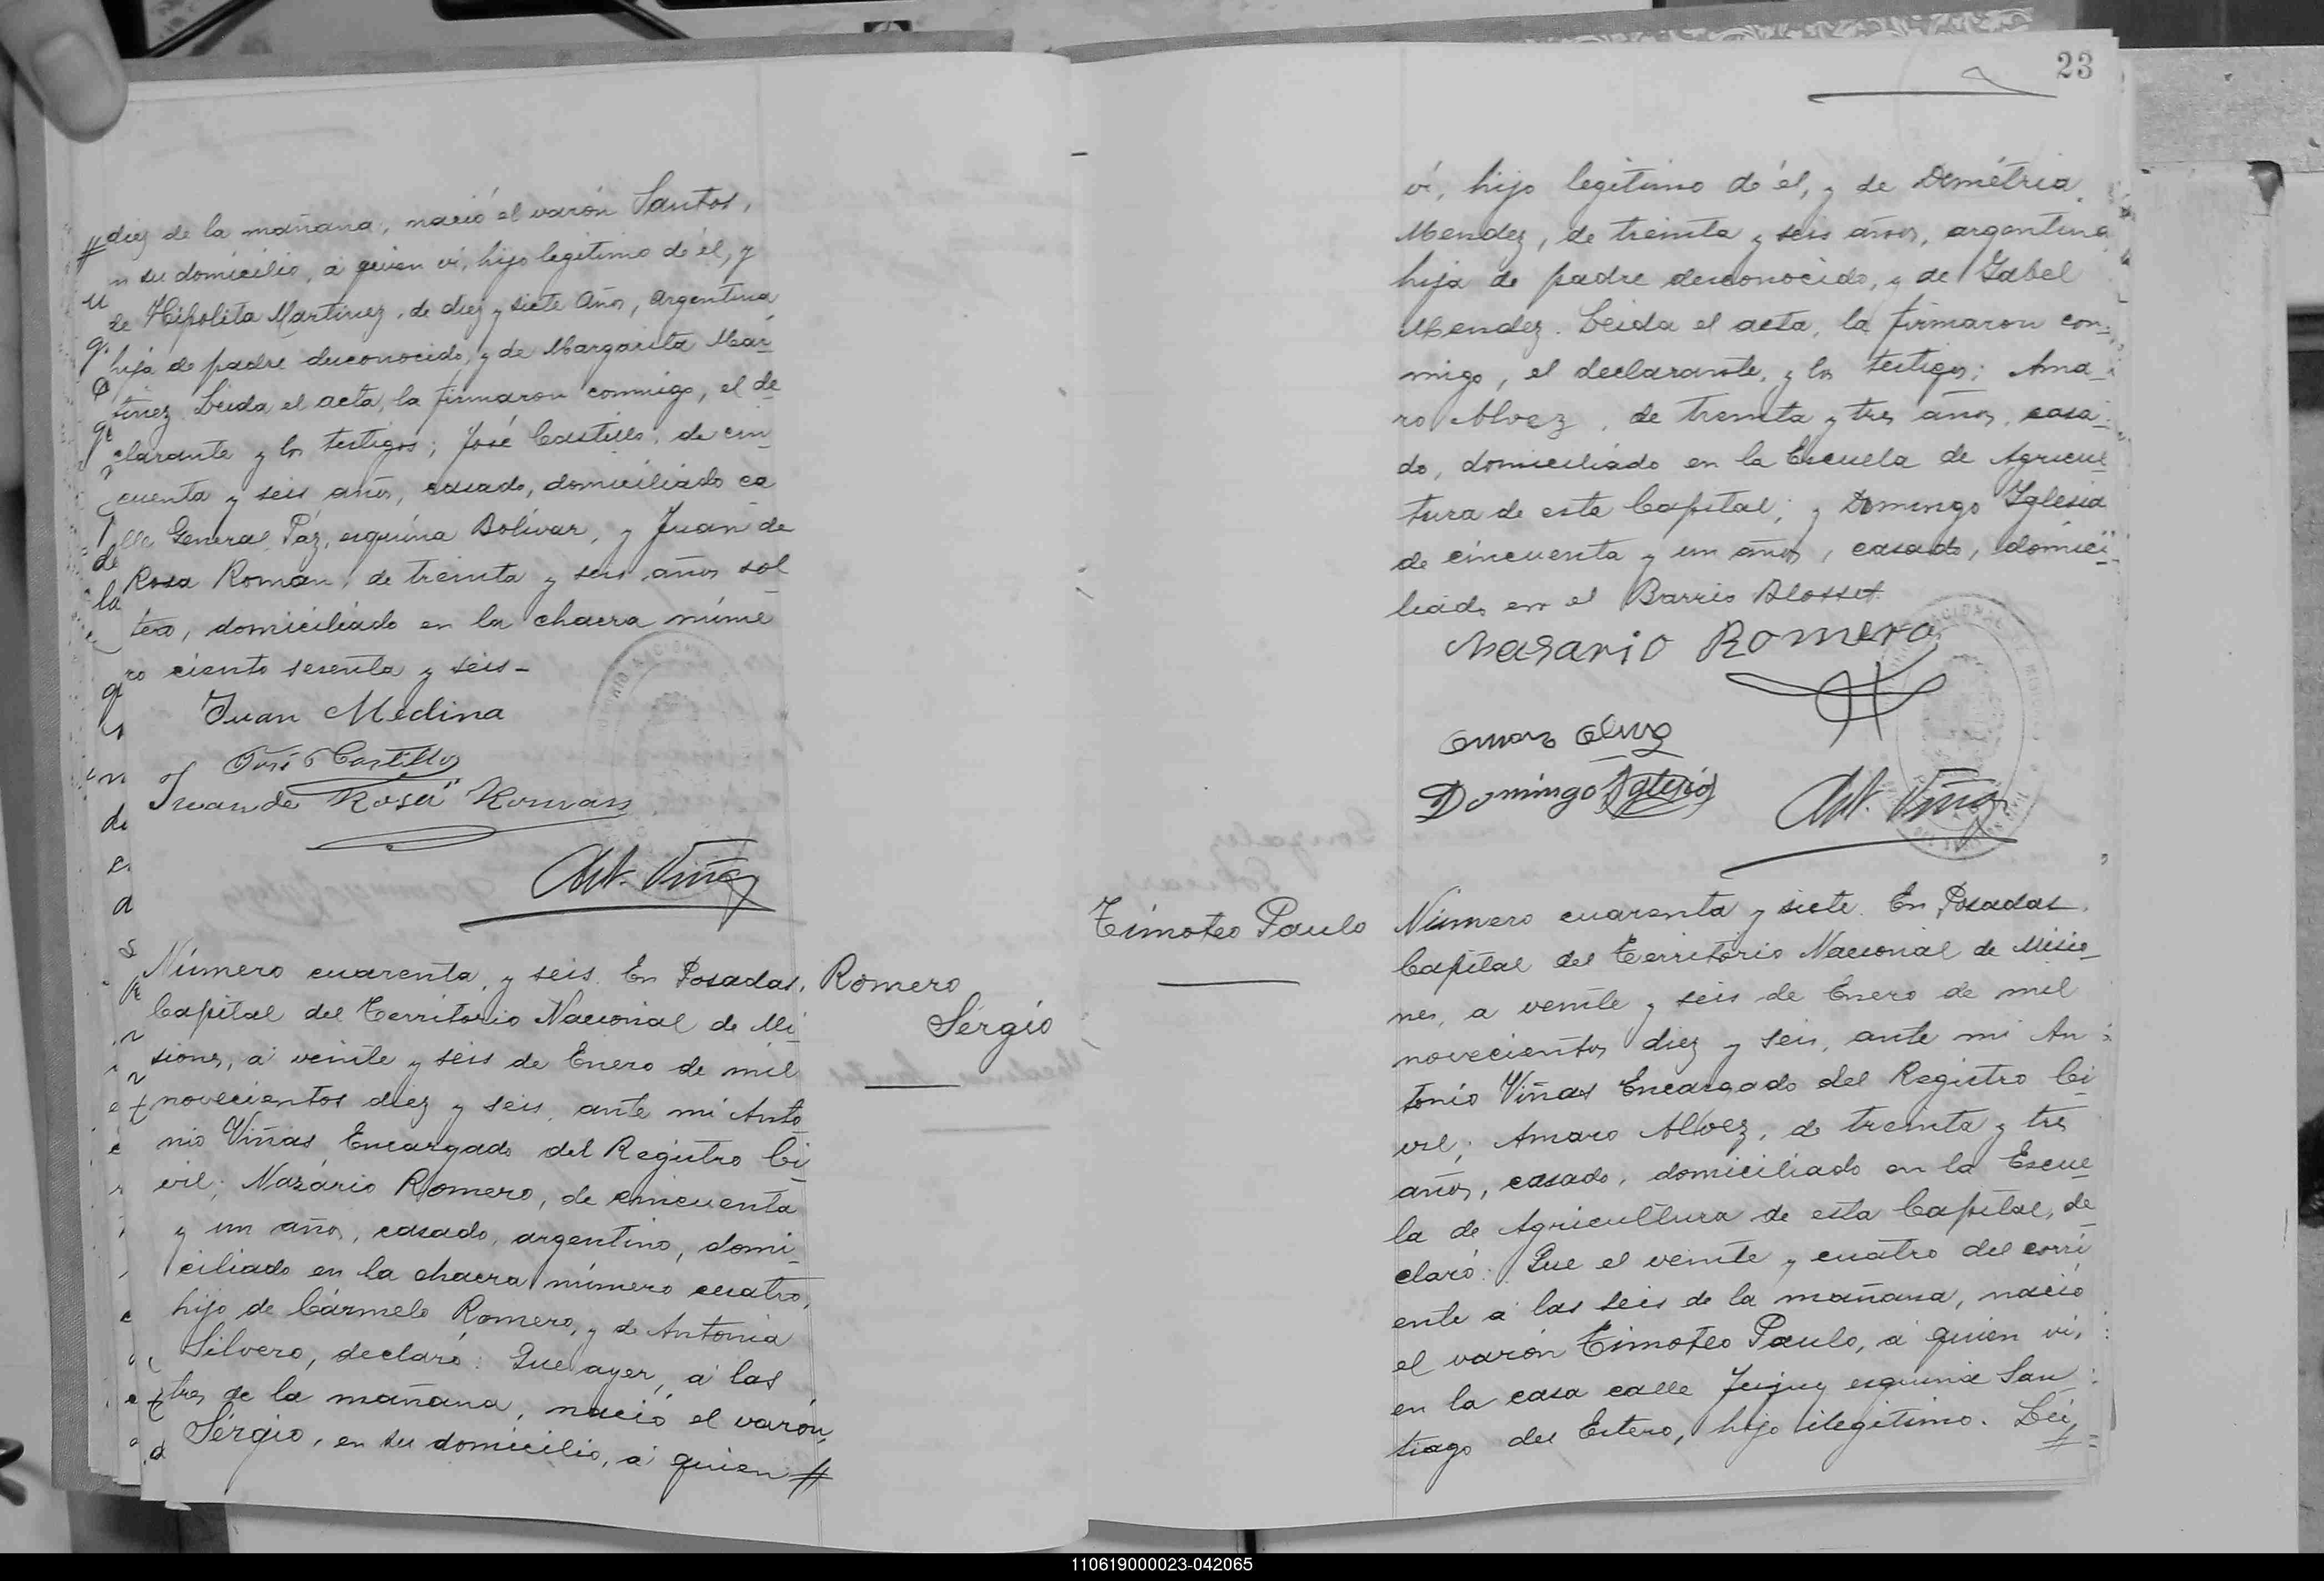 diez de la mañana, nació el varón Santos,
n su domicilio, a quien vi, hijo legitimo de él, y
de Hipolita Martinez, de diez y siete años, argentina
hija de padre desconocido, y de Margarita Mar-
tinez. Leida el acta, la firmaron conmigo, el de-
clarante y los testigos; José Castillo, de cin-
cuenta y seis años, casado, domiciliado ca-
lle General Paz, esquina Bolivar, y Juan de
Rosa Roman, de treinta y seis años sol-
tero, domiciliado en la chacra núme
ro ciento sesenta y seis-
Juan Medina
José Castillo
Juan de Rosa Roman
Ant. Viñas
Número cuarenta, y seis. En Posadas,
Capital del Territorio Nacional de Mi-
siones, a veinte y seis de Enero de mil
novecientos diez y seis, ante mi Anto-
nio Viñas, Encargado del Registro Ci-
vil; Nazário Romero, de cincuenta
y un años, casado, argentino, domi-
ciliado en la chacra número cuatro,
hijo de Cármelo Romero, y de Antonia
Silvero, declaró: Que ayer, a las
tres de la mañana, nació el varón,
Sérgio, en su domicilio, a quien #
Romero
Sérgio
23
vi, hijo legitimo de él, y de Demétria
Mendez, de treinta y seis años, argentina
hija de padre desconocido, y de Isabel
Mendez. Leida el acta, la firmaron con-
migo, el declarante, y los testigos; Ama-
ro Alvez, de treinta y tres años, casa-
do, domiciliado en la Escuela de Agricul-
tura de esta Capital; y Domingo Iglesia
de cincuenta y un años, casado, domici-
liado en el Barrio Blosset
Nasario Romero
Amaro Alvez
Domingo Iglesia
Ant. Viñas
Timoteo Paulo
Número cuarenta y siete. En Posadas,
Capital del Territorio Nacional de Misio-
nes, a veinte y seis de Enero de mil
novecientos diez y seis, ante mi An-
tonio Viñas Encargado del Registro Ci-
vil; Amaro Alvez, de treinta y tres
años, casado, domiciliado en la Escue-
la de Agricultura de esta Capital, de-
claró: Que el veinte y cuatro del corri-
ente a las seis de la mañana, nació
el varón Timoteo Paulo, a quien vi,
en la casa calle Jujuy esquina San-
tiago del Estero, hijo ilegitimo. Lei
110619000023-042065